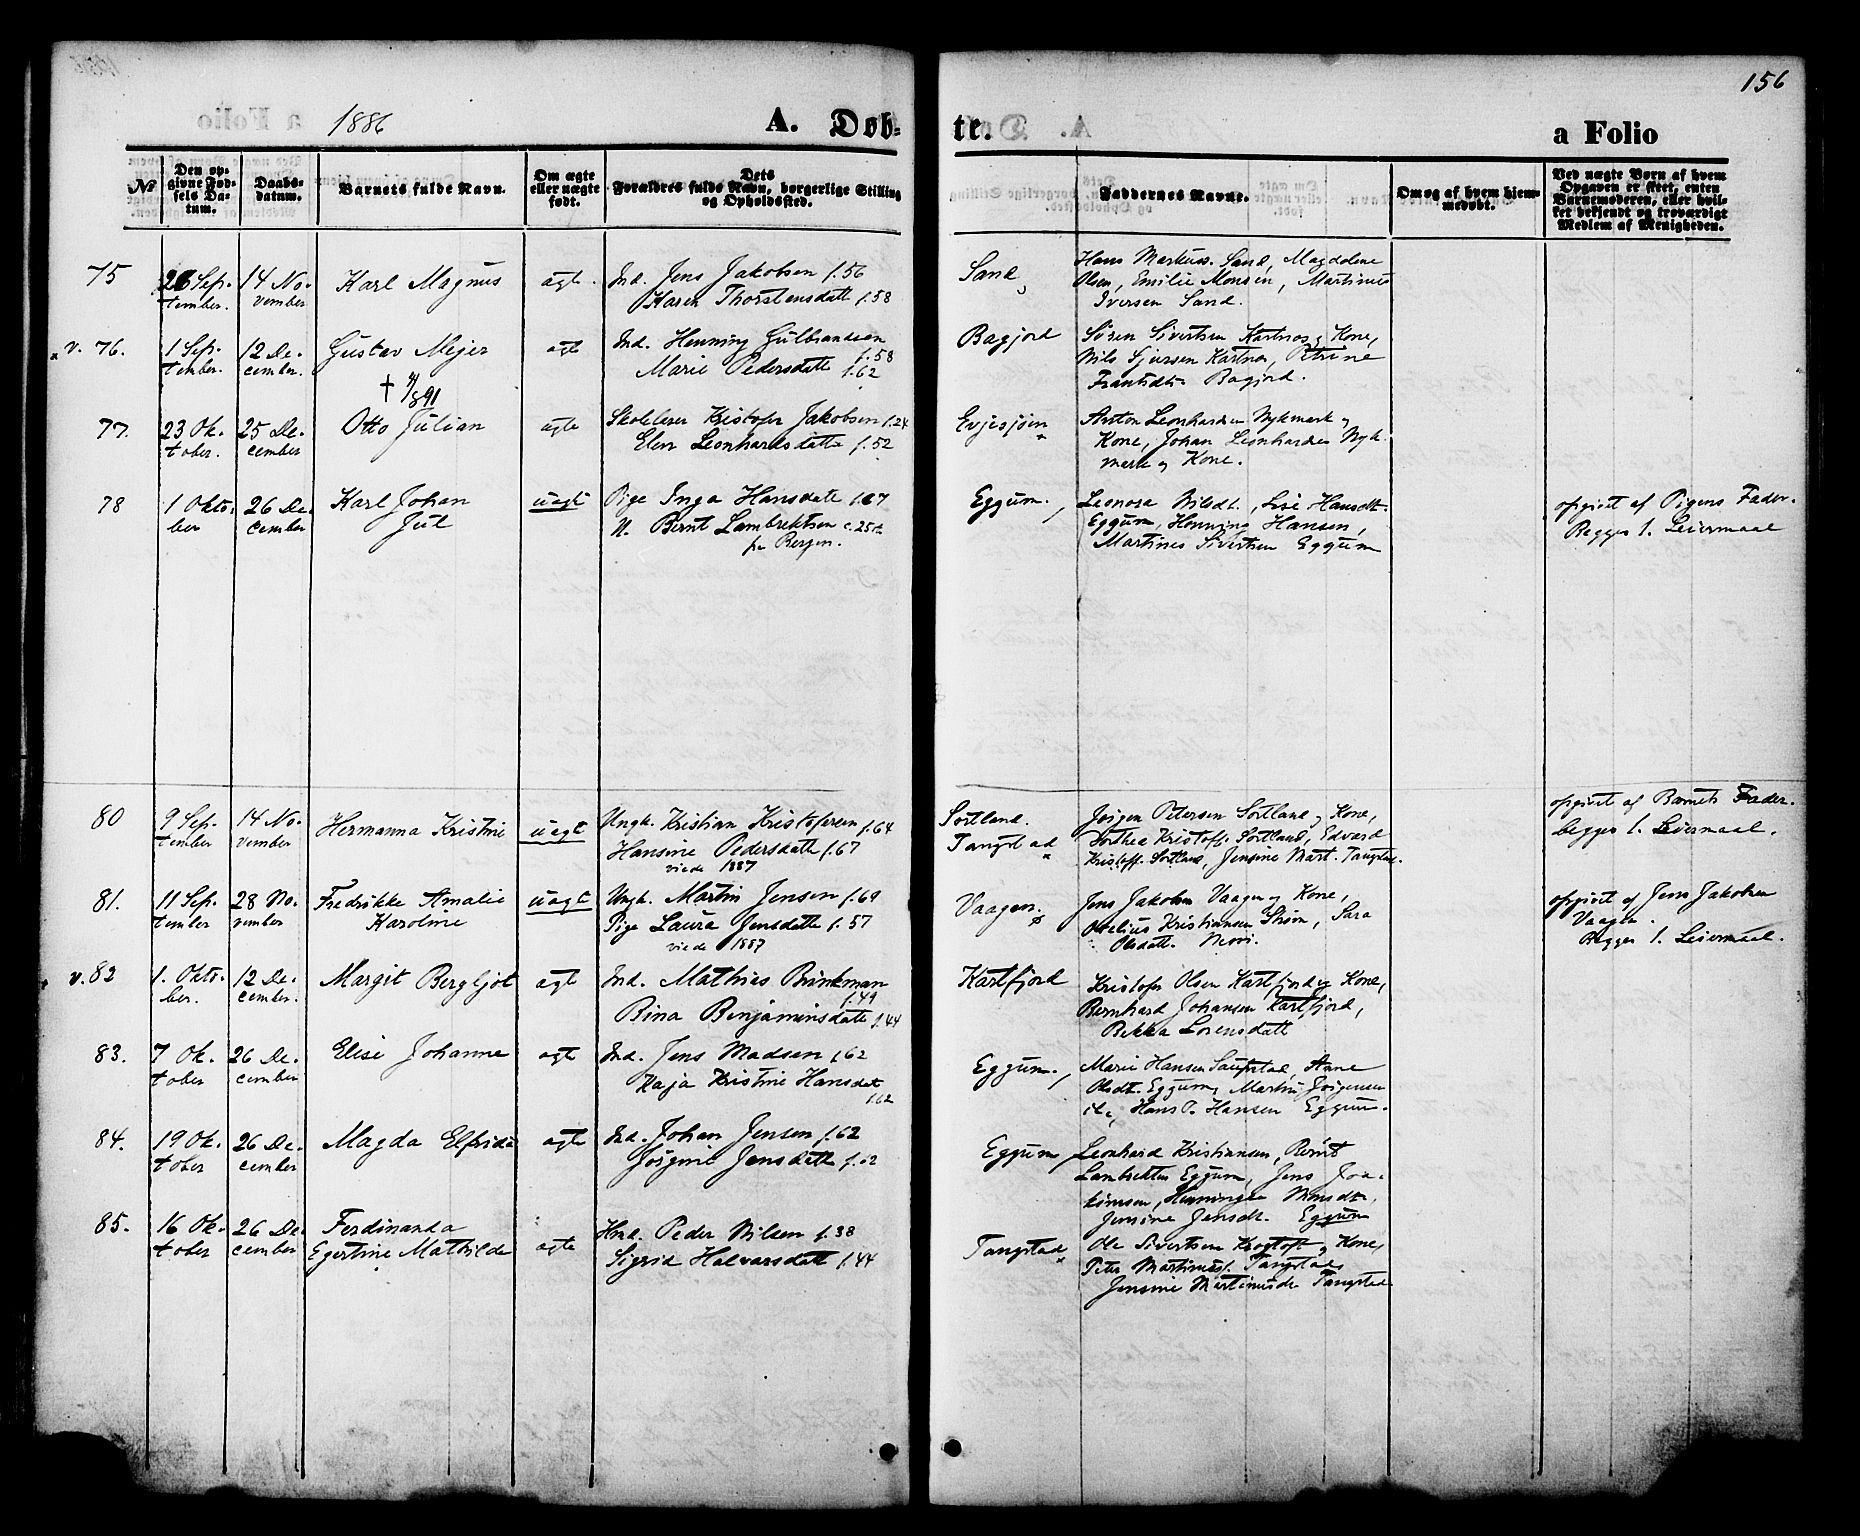 156
1886
A. Døb-
te.
a Folio
No
Den op-
givne Fød-
sels Da-
tum.
Daabs-
datum.
Barnets fulde Navn.
Om ægte
eller uægte
født.
Dets
Forældres fulde Navn, borgerlige Stilling
og Opholdssted.
Faddernes Navne.
Om og af hvem hjem-
medøbt.
Ved uægte Børn af hvem
Opgaven er skeet, enten
Barnemoderen, eller hvil-
ket bekjendt og troværdigt
Medlem af Menigheden.
75
26 Sep-
tember.
14 No-
vember
Karl Magnus
ægte.
Ind. Jens Jakobsen f. 56
Karen Thorstensdatt f. 58
Sand
Hans Markuss. Sand, Magdalene
Olsen, Emilie Monsen, Martinus
Iversen Sand.
v. 76.
1 Sep-
tember.
12 De-
cember.
Gustav Mejer
† 4/891
ægte
Ind. Henning Gulbrandsen
f. 58
Marie Pedersdatt f. 62
Bagjord
Søren Sivertsen Kartnes og Kone,
Nils Sjursen Kartnes, Petrine
Frantsdtr Bagjord.
77.
23 Ok-
tober.
25 De-
cember
Otto Julian
ægte
Skolelærer Kristofer Jakobsen f. 24
Elen Leonhardsdatte f. 52
Evjesjøen
Anton Leonhardsen Nykmark og
Kone, Johan Leonhardsen Nyk-
mark og Kone.
78
1 Okto-
ber
26 De-
cember
Karl Johan
Jul
uægt
Pige Inga Hansdatt f. 67
N. Bernt Lambrektsen c. 25 a
fra Bergen.
Eggum.
Leonora Nilsdt., Lise Hansdt.
Eggum, Henning Hansen,
Martines Sivertsen Eggum
opgivet af Pigens Fader.
Begges 1. Leiermaal
80
9 Sep-
tember
14 No-
vember
Hermanna Kristine
uægt
Ungk. Kristian Kristofersen f. 64
Hansine Pedersdatte f. 67
viede 1887
Sortland.
Tangstad
Jørgen Petersen Sortland og Kone,
Dorthea Kristoff. Sortland, Edvard
Kristoff. Sortland, Jensine Mart. Tangstad.
opgivet af Barnets Fader.
begges 1. Leiermaal.
81.
11 Sep-
tember
28 No-
vember
Fredrikke Amalie
Karoline
uægt
Ungk. Martin Jensen f. 69
Pige Laura Jensdatte f. 57
viede 1887
Vaagen.
Jens Jakobsen Vaagen og Kone,
Otelius Kristiansen Strøm, Sara
Olsdatt.
opgivet af Jens Jakobsen
Vaagen.
Begges 1. Leiermaal.
v. 82
1. Okto-
ber.
12 De-
cember.
Margit Bergljot
ægt
Ind. Mathias Brinkman
f. 49
Bina Benjaminsdatte f. 44
Kartfjord
Kristofer Olsen Kartfjord og Kone,
Bernhard Johansen Kartfjord,
Bekka Lorensdatt
83.
7 Ok-
tober
26 De-
cember
Elise Johanne
ægte
Ind. Jens Madsen f. 62
Kaja Kristine Hansdat
f. 62
Eggum.
Marie Hansen Saupstad, Anne
Olsdt. Eggum, Martin Jørgensen
ib., Hans O. Hansen Eggum.
84.
19 Ok-
tober
26 De-
cember
Magda Elfrida
ægte
Ind. Johan Jensen f. 62
Jørgine Jensdatte f. 62
Eggum
Leonhard Kristiansen, Bernt
Lambrektsen Eggum, Jens Joa-
kimsen, Henningsen Monsdtr,
Jensine Jensdt. Eggum
85.
16 Ok-
tober
26 De-
cember
Ferdinanda
Egertine Mathilde
ægte
Hmd. Peder Nilsen f. 38
Sigrid Halvarsdatt f. 44
Tangstad
Ole Sivertsen Krogtoft og Kone,
Peter Martinuss. Tangstad
Jensine Martinusdtr Tangstad